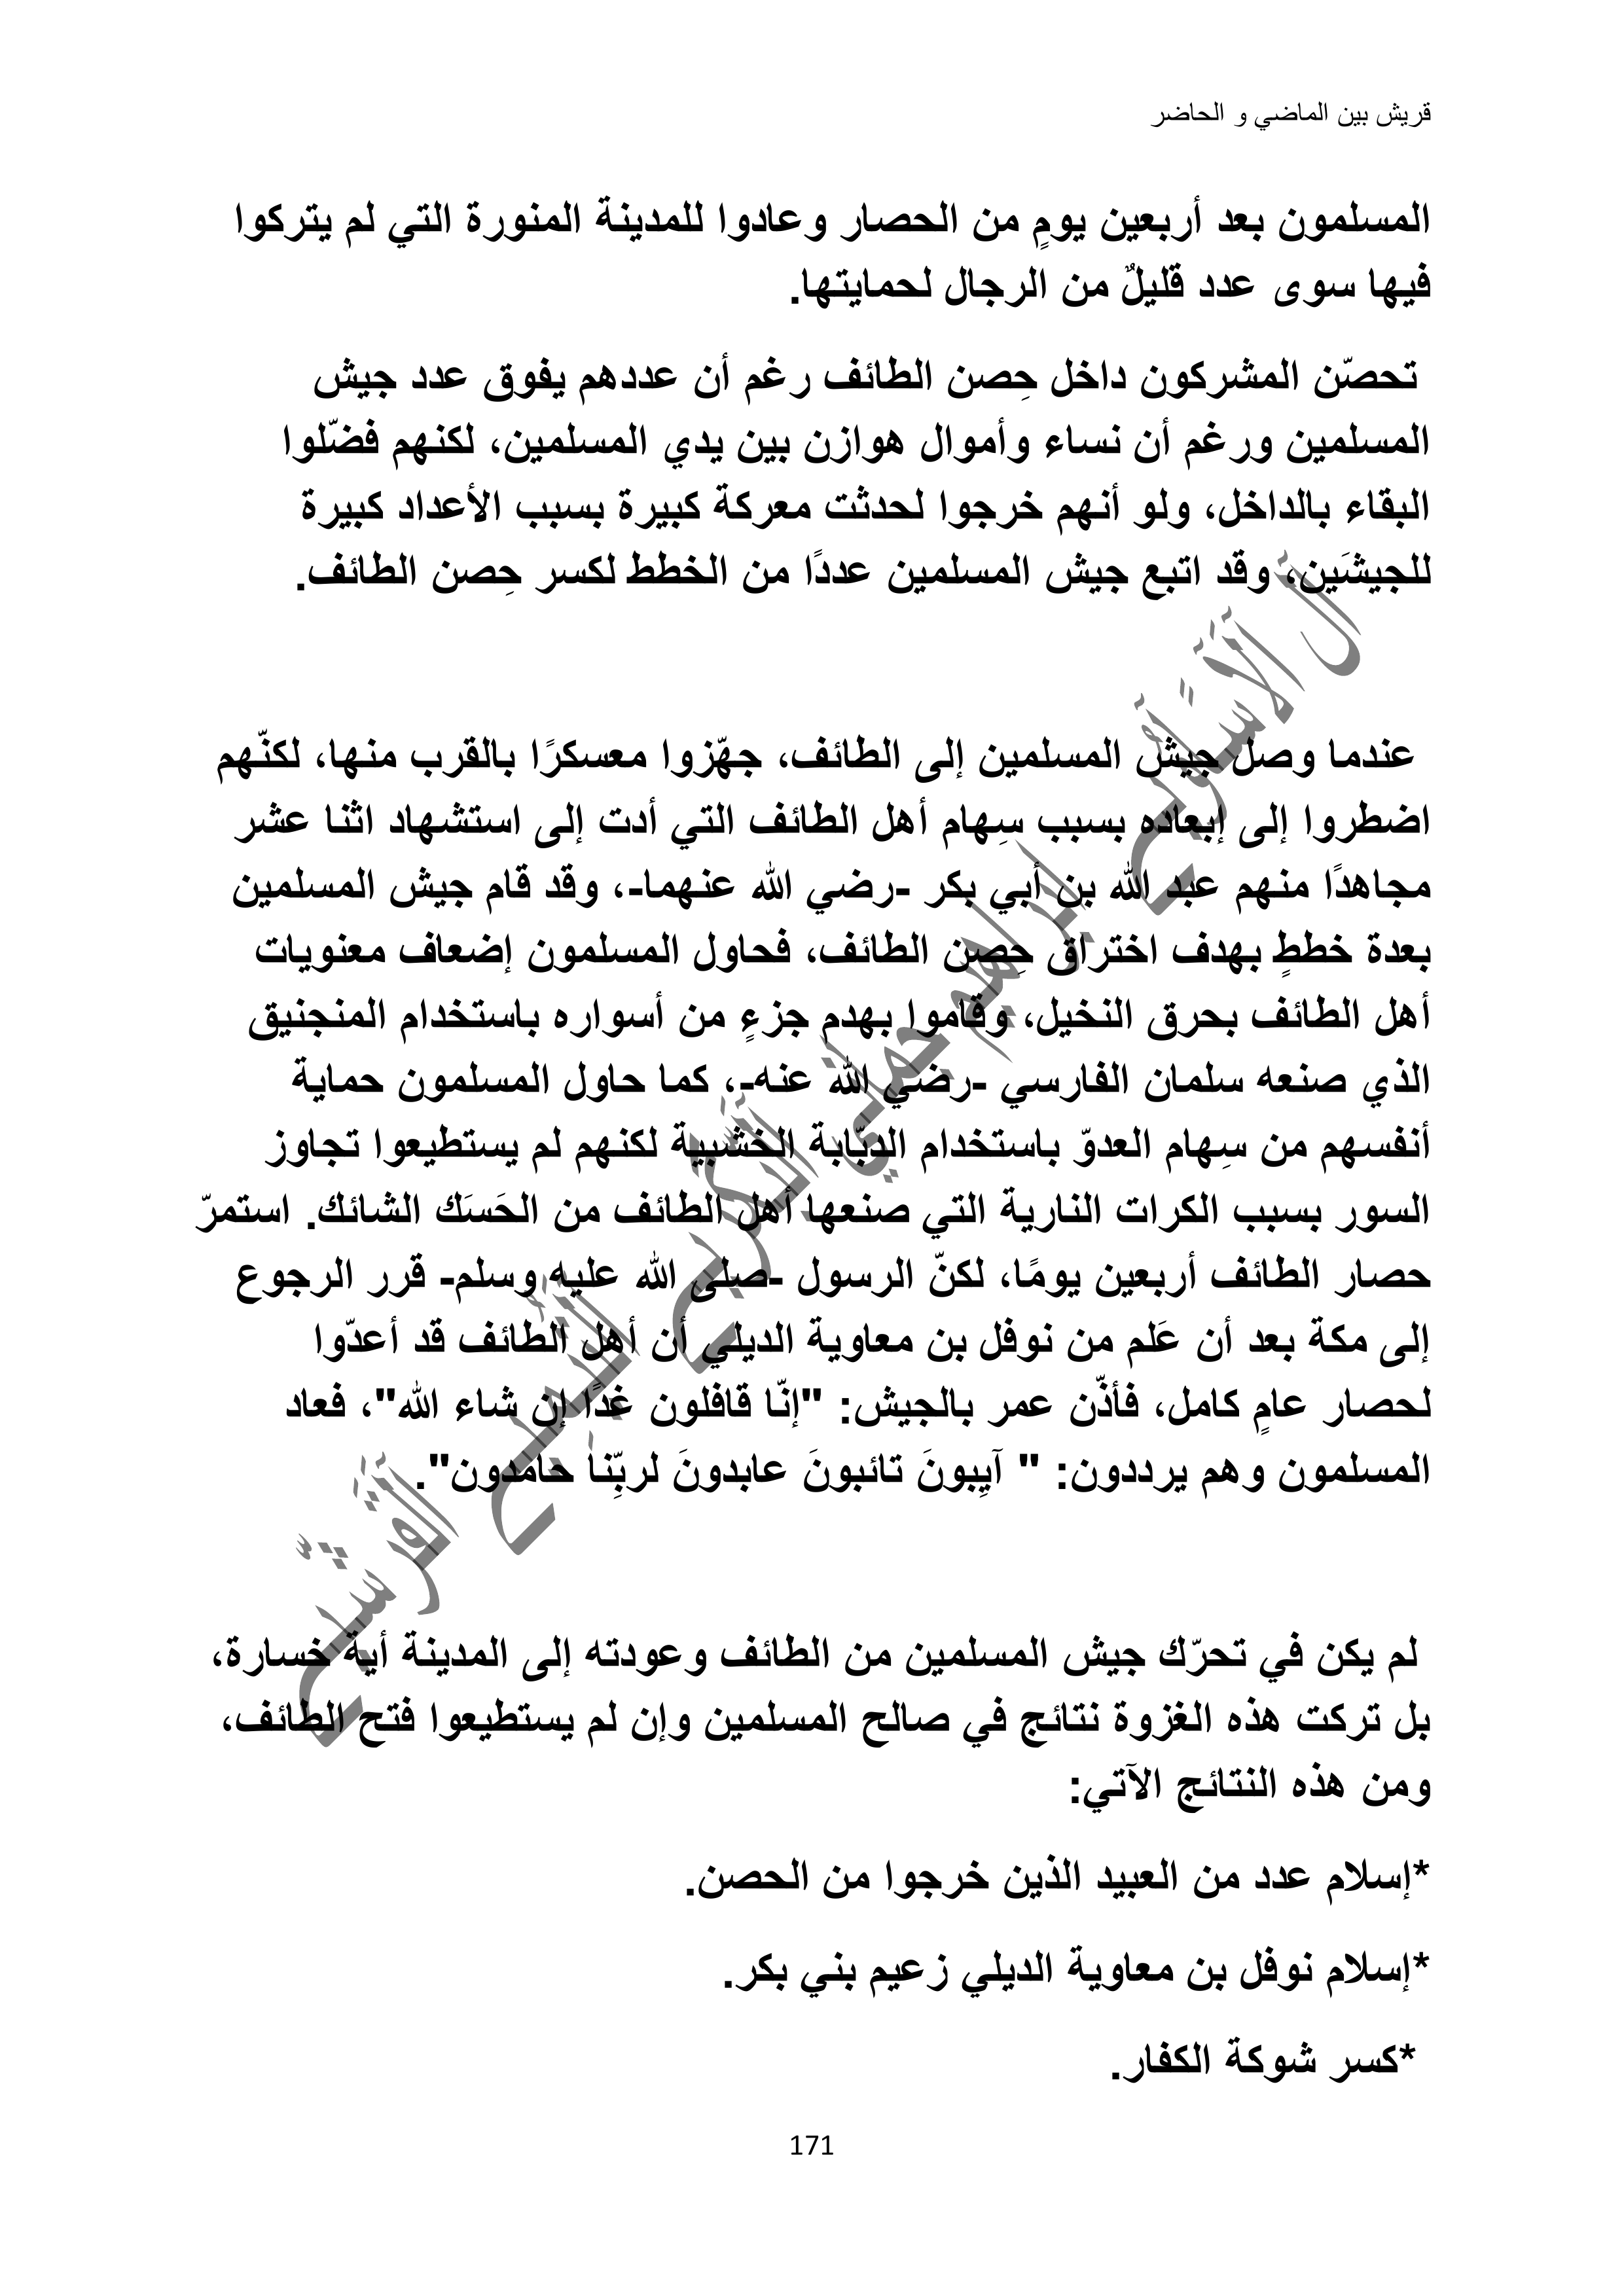 قريش بين الماضي و الحاضر
المسلمون بعد أربعين يومٍ من الحصار وعادوا للمدينة المنورة التي لم يتركوا
فيها سوى عدد قليلٌ من الرجال لحمايتها.
تحصّن المشركون داخل حِصن الطائف رغم أن عددهم يفوق عدد جيش
المسلمين ورغم أن نساء وأموال هوازن بين يدي المسلمين، لكنهم فضّلوا
البقاء بالداخل، ولو أنهم خرجوا لحدثت معركة كبيرة بسبب الأعداد كبيرة
للجيشَين، وقد اتبع جيش المسلمين عددًا من الخطط لكسر حِصن الطائف.
عندما وصل جيش المسلمين إلى الطائف، جهّزوا معسكرًا بالقرب منها، لكنّهم
اضطروا إلى إبعاده بسبب سِهام أهل الطائف التي أدت إلى استشهاد اثنا عشر
مجاهدًا منهم عبد الله بن أبي بكر -رضي الله عنهما-، وقد قام جيش المسلمين
بعدة خططٍ بهدف اختراق حِصن الطائف، فحاول المسلمون إضعاف معنويات
أهل الطائف بحرق النخيل، وقاموا بهدم جزءٍ من أسواره باستخدام المنجنيق
الذي صنعه سلمان الفارسي -رضي الله عنه-، كما حاول المسلمون حماية
أنفسهم من سِهام العدوّ باستخدام الدبّابة الخشبية لكنهم لم يستطيعوا تجاوز
السور بسبب الكرات النارية التي صنعها أهل الطائف من الحَسَك الشائك. استمرّ
حصار الطائف أربعين يومًا، لكنّ الرسول -صلى الله عليه وسلم- قرر الرجوع
إلى مكة بعد أن عَلم من نوفل بن معاوية الديلي أن أهل الطائف قد أعدّوا
لحصار عامٍ كامل، فأذّن عمر بالجيش: "إنّا قافلون غدًا إن شاء الله"، فعاد
المسلمون وهم يرددون: " آيِبونَ تائبونَ عابدونَ لربِّنا حامدون".
لم يكن في تحرّك جيش المسلمين من الطائف وعودته إلى المدينة أية خسارة،
بل تركت هذه الغزوة نتائج في صالح المسلمين وإن لم يستطيعوا فتح الطائف،
ومن هذه النتائج الآتي:
*إسلام عدد من العبيد الذين خرجوا من الحصن.
*إسلام نوفل بن معاوية الديلي زعيم بني بكر.
*كسر شوكة الكفار.
171